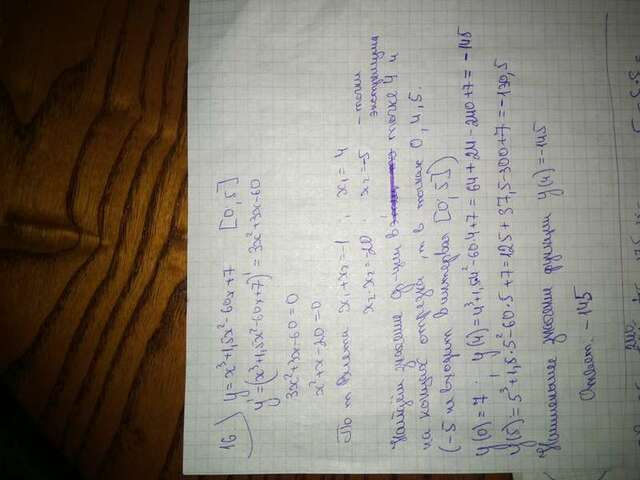 16) y = x³+1,5x²-60x+7 [0; 5]
y' = (x³+1,5x²-60x+7)' = 3x²+3x-60
3x²+3x-60=0
x²+x-20=0
По т Виета x₁+x₂=-1 ; x₁=4
x₂·x₂=-20 ; x₂=-5 - точки экстремума
Найдём значение ф-ции в точке 4 и
на концах отрезка, т в точках 0, 4, 5.
(-5 не входит в интервал [0; 5])
y(0)=7 ; y(4)=4³+1,5·4²-60·4+7=64+24-240+7=-145
y(5)=5³+1,5·5²-60·5+7=125+37,5-300+7=-130,5
Наименьшее значение функции y(4)=-145
Ответ: -145